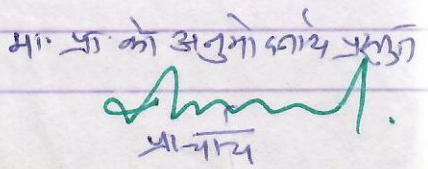 मा. प्रा. को अनुमोदनार्थ प्रस्तुत
प्राचार्य